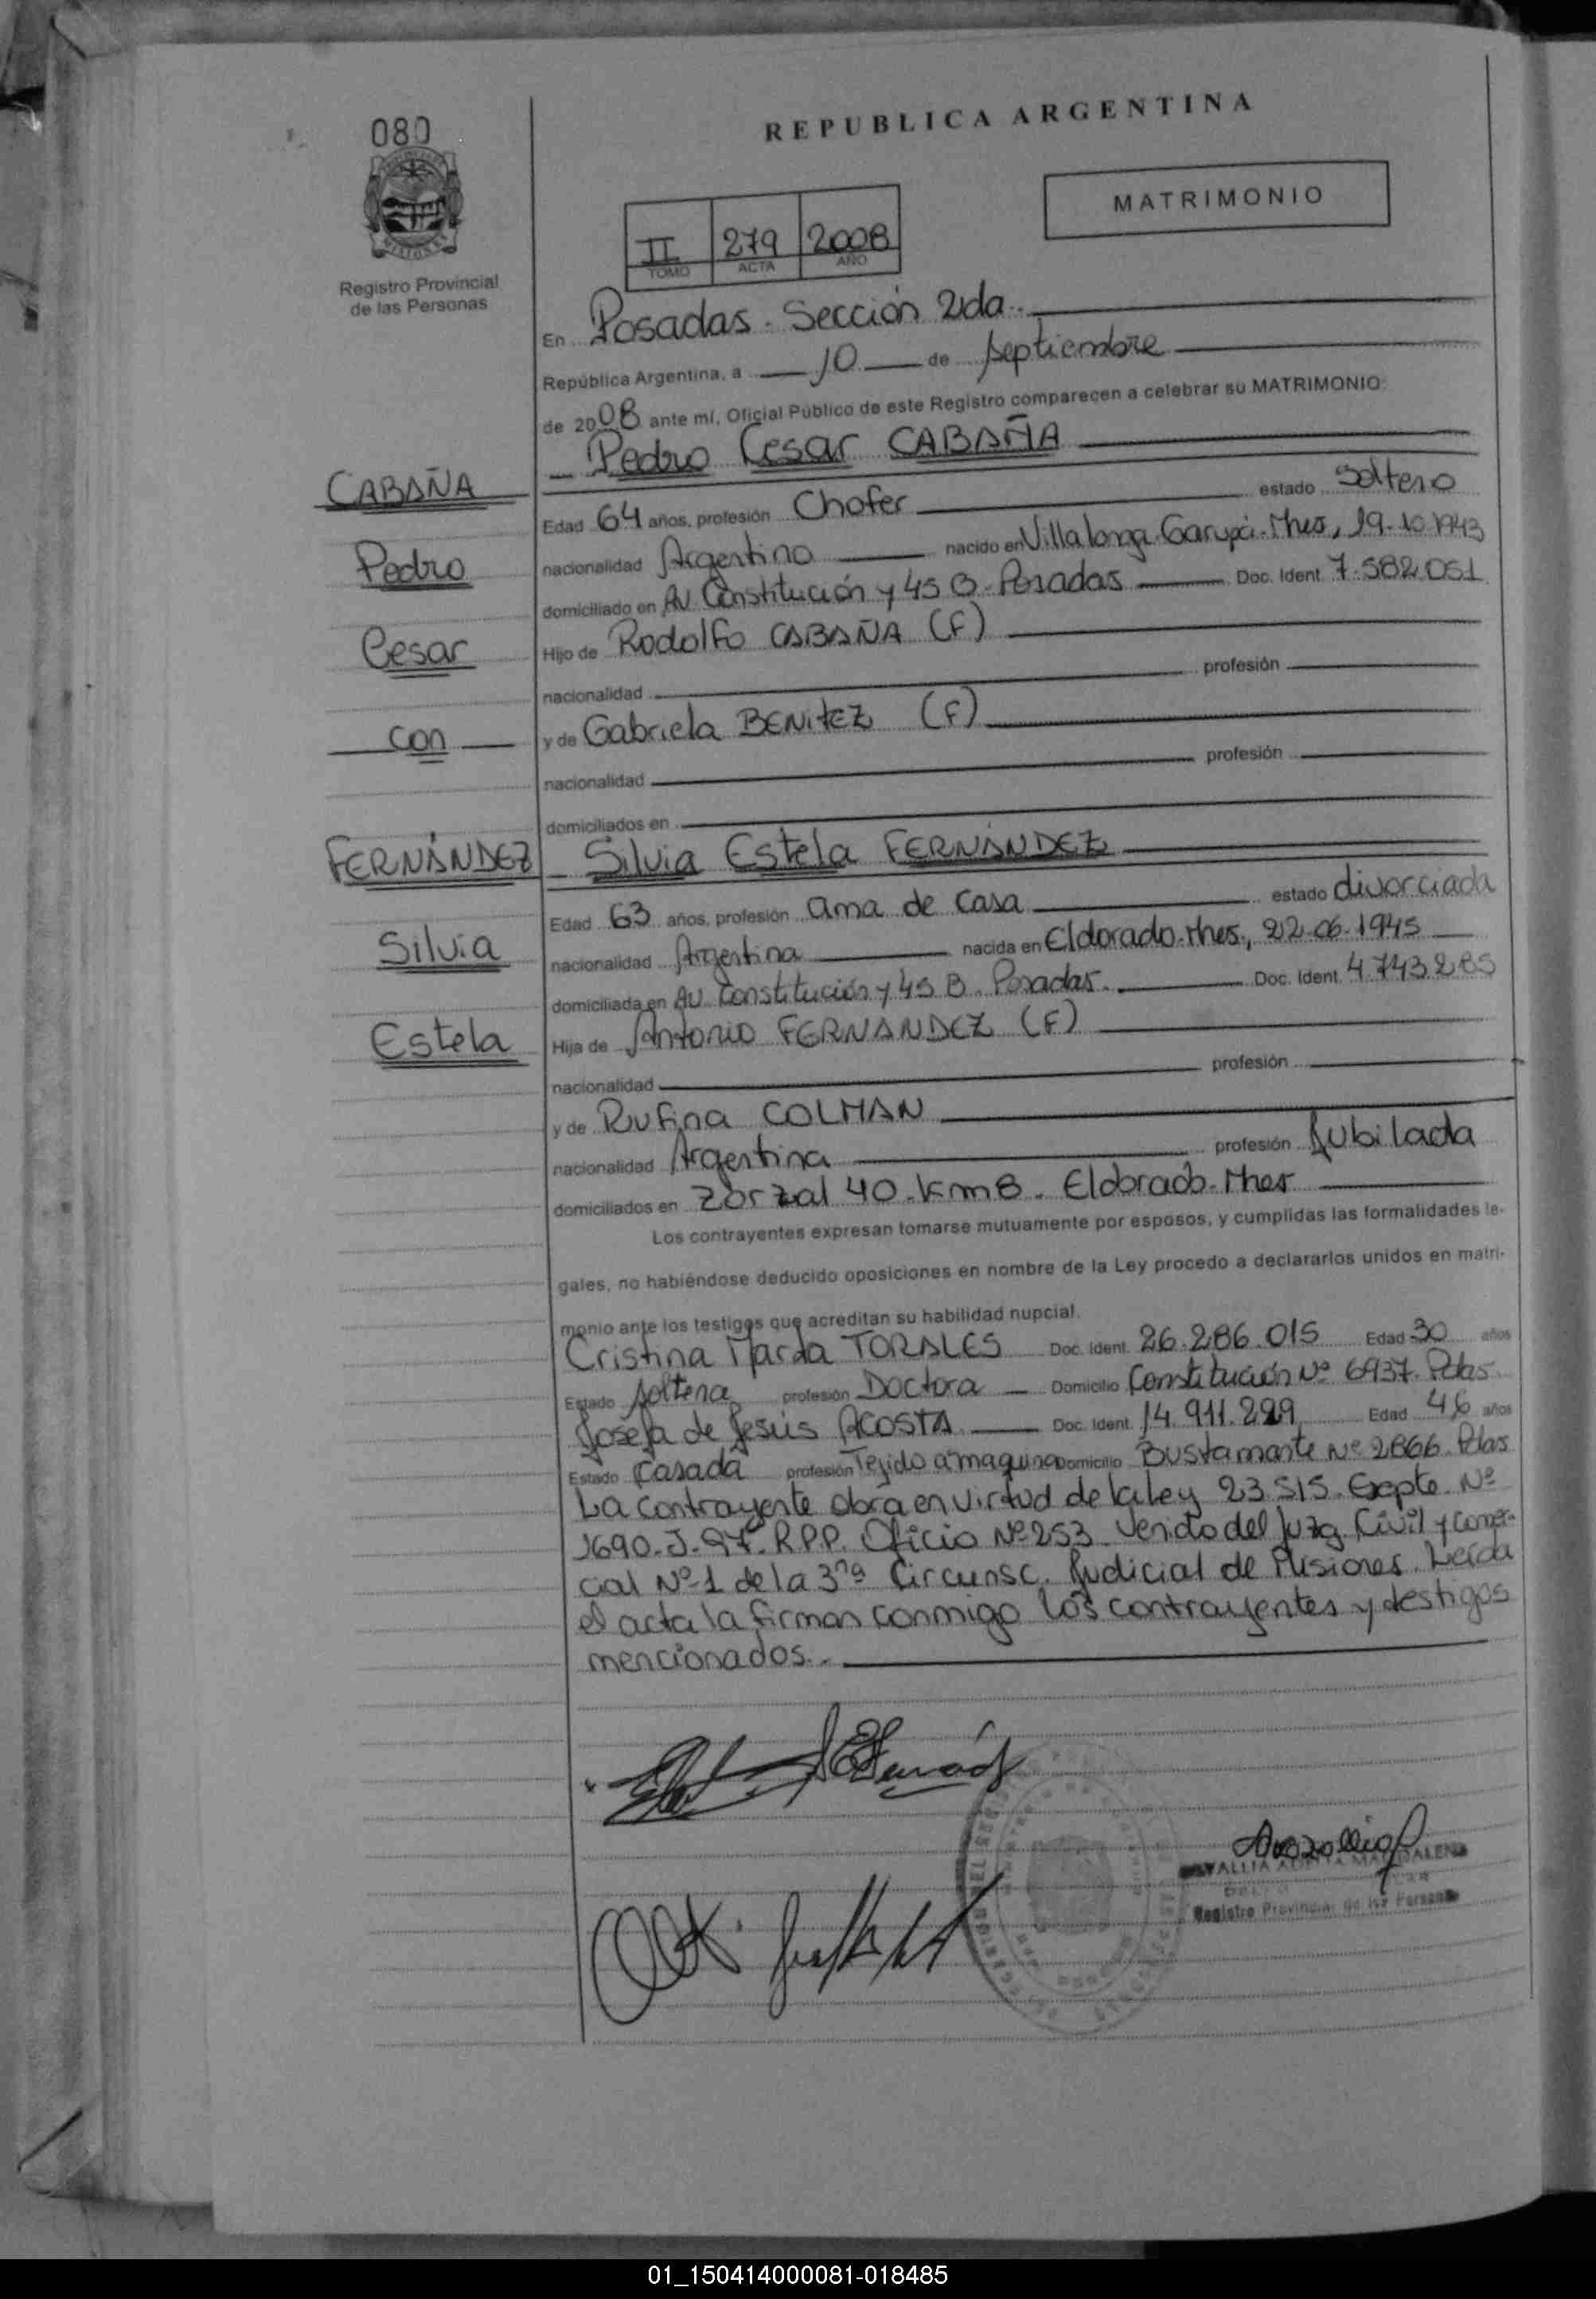 080
REPUBLICA ARGENTINA
MATRIMONIO
II 279 2008
TOMO ACTA AÑO
Registro Provincial
de las Personas
En Posadas. Sección 2da.
República Argentina, a 10 de septiembre
de 2008 ante mí, Oficial Público de este Registro comparecen a celebrar su MATRIMONIO:
Pedro Cesar CABAÑA
CABAÑA
Edad 64 años, profesión Chofer estado Soltero
nacionalidad Argentino nacido en Villalonga-Garupá-Mnes, 19.10.1943
Pedro
domiciliado en Av. Constitución y 45 B-Posadas Doc. Ident. 7.582.051
Cesar
Hijo de Rodolfo CABAÑA (F)
nacionalidad profesión
con
y de Gabriela BENITEZ (F)
nacionalidad profesión
domiciliados en
FERNÁNDEZ
Silvia Estela FERNÁNDEZ
Edad 63 años, profesión ama de casa estado divorciada
Silvia
nacionalidad Argentina nacida en Eldorado-Mnes., 22-06-1945
domiciliada en Av. Constitución y 45 B. Posadas. Doc. Ident. 4.743.285
Estela
Hija de Antonio FERNÁNDEZ (F)
nacionalidad profesión
y de Rufina COLMAN
nacionalidad Argentina profesión Jubilada
domiciliados en Zorzal 40-Km8. Eldorado-Mnes
Los contrayentes expresan tomarse mutuamente por esposos, y cumplidas las formalidades le-
gales, no habiéndose deducido oposiciones en nombre de la Ley procedo a declararlos unidos en matri-
monio ante los testigos que acreditan su habilidad nupcial.
Cristina TORALES Doc. Ident. 26.286.015 Edad 30 años
Estado soltera profesión Doctora Domicilio Constitución Nº 6937. Pdas.
Josefa de Jesús ACOSTA Doc. Ident. 14.911.299 Edad 46 años
Estado Casada profesión Tejido a maquina Domicilio Bustamante Nº 2866. Pdas
La contrayente obra en virtud de la Ley 23.515. Expte. Nº
1690-J-97-R.P.P. Oficio Nº 253. Venido del Juzg. Civil y Comer-
cial Nº 1 de la 3ra Circunsc. Judicial de Misiones. Leída
el acta la firman conmigo los contrayentes y testigos
mencionados.
Registro Provincial de las Personas
01_150414000081-018485